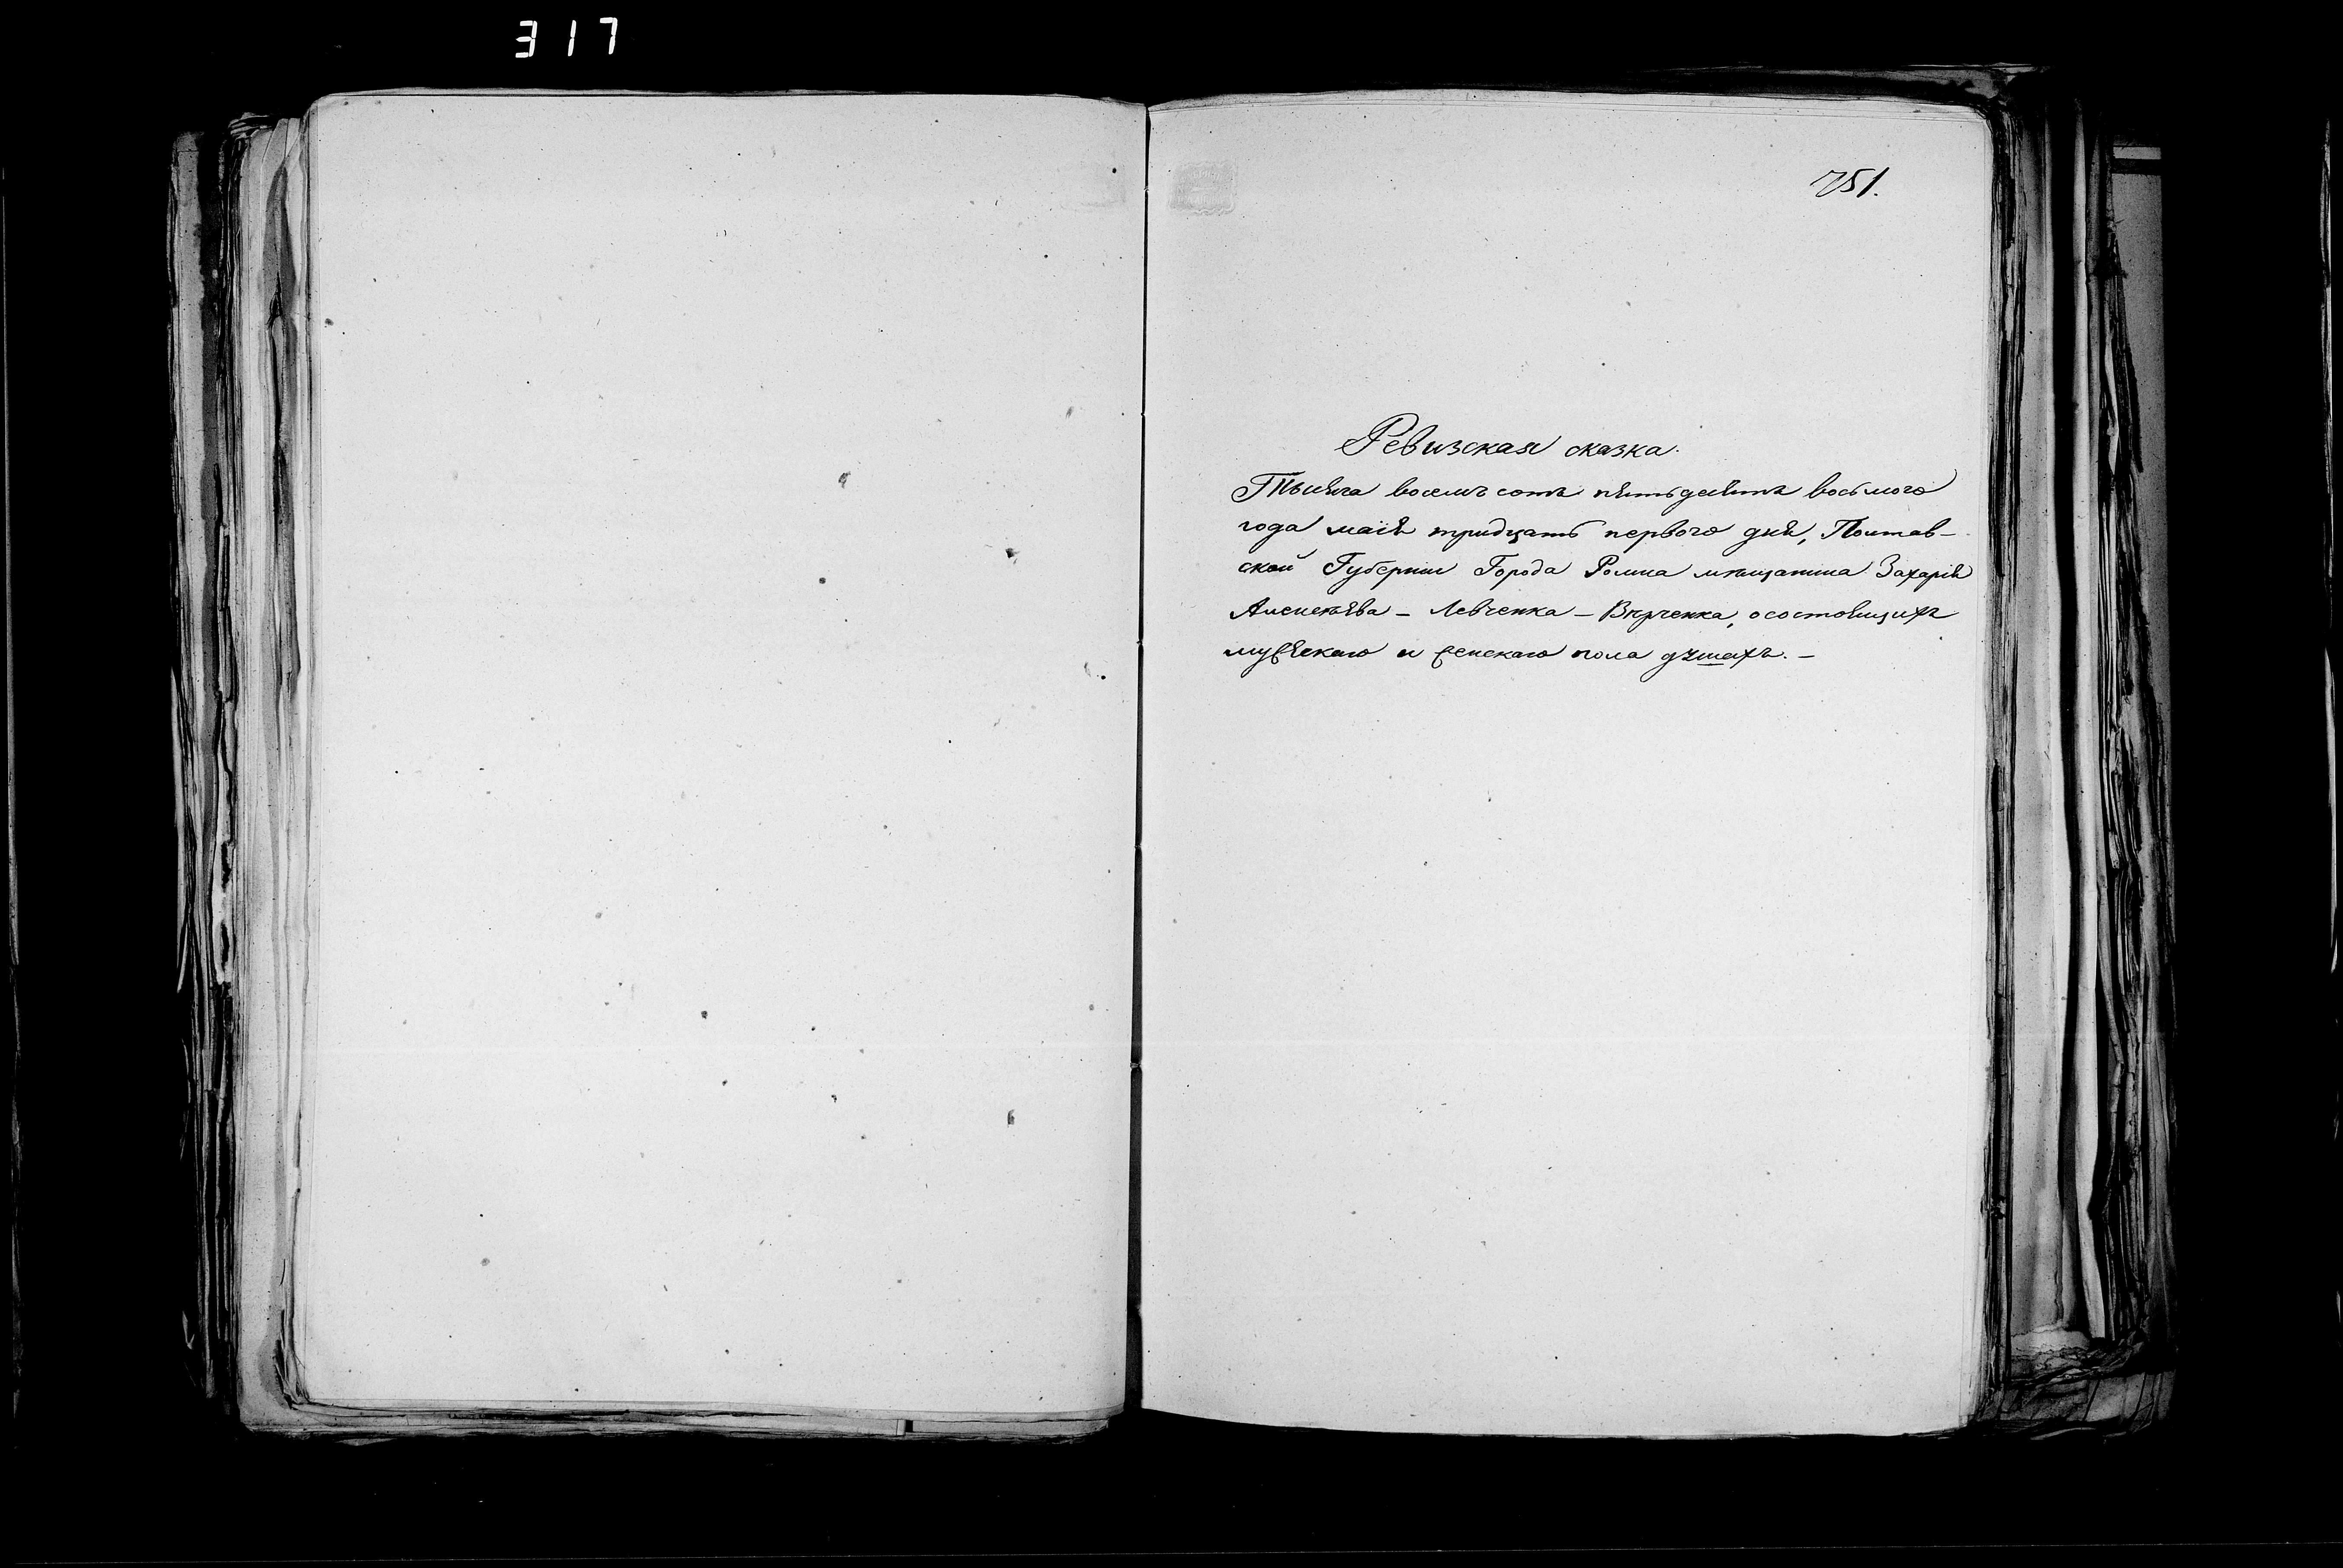 317
751.
Ревизская сказка.
Тысяча восемъ сотъ пятьдесятъ восьмого
года маія тридцать первого дня, Полтав-
ской Губерніи Города Ромна мѣщанина Захарія
Алексѣева - Левченка - Вѣрченка, о состоящихъ
мужескаго и женскаго пола душахъ. -